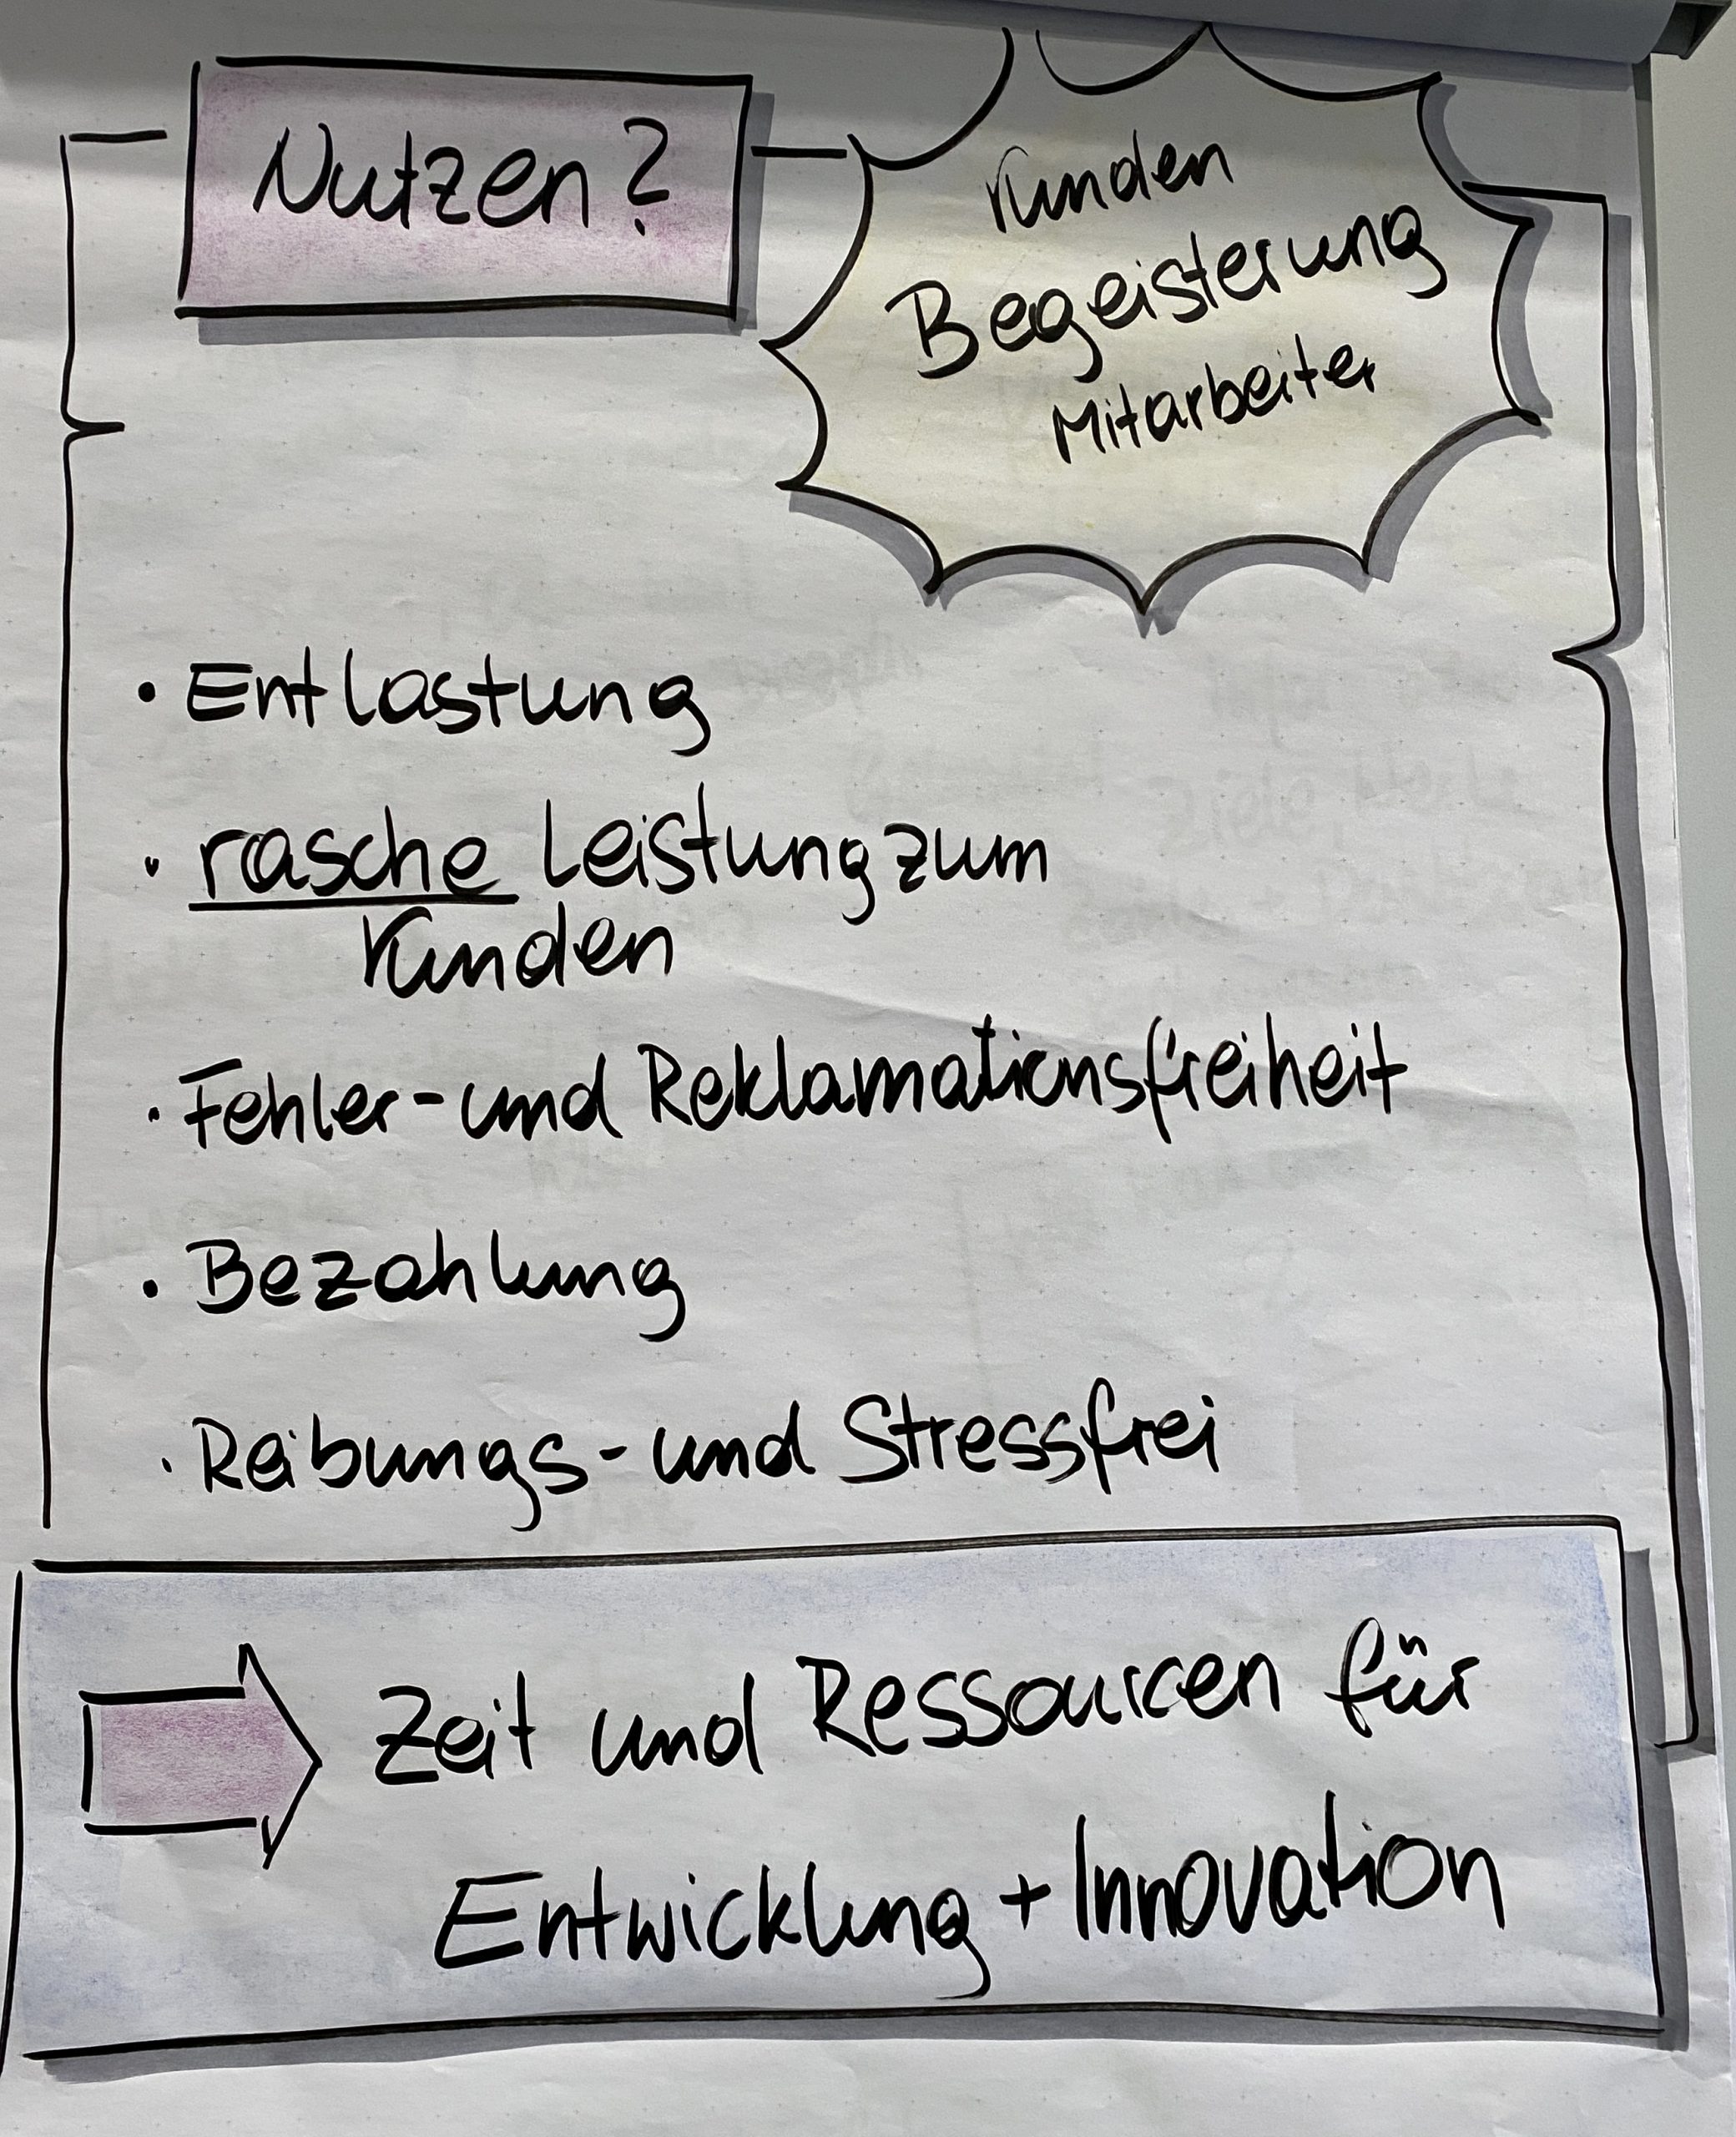 Nutzen?
Kunden
Begeisterung
Mitarbeiter
• Entlastung
• rasche Leistung zum
Kunden
• Fehler- und Reklamationsfreiheit
• Bezahlung
• Reibungs- und Stressfrei
Zeit und Ressourcen für
Entwicklung + Innovation